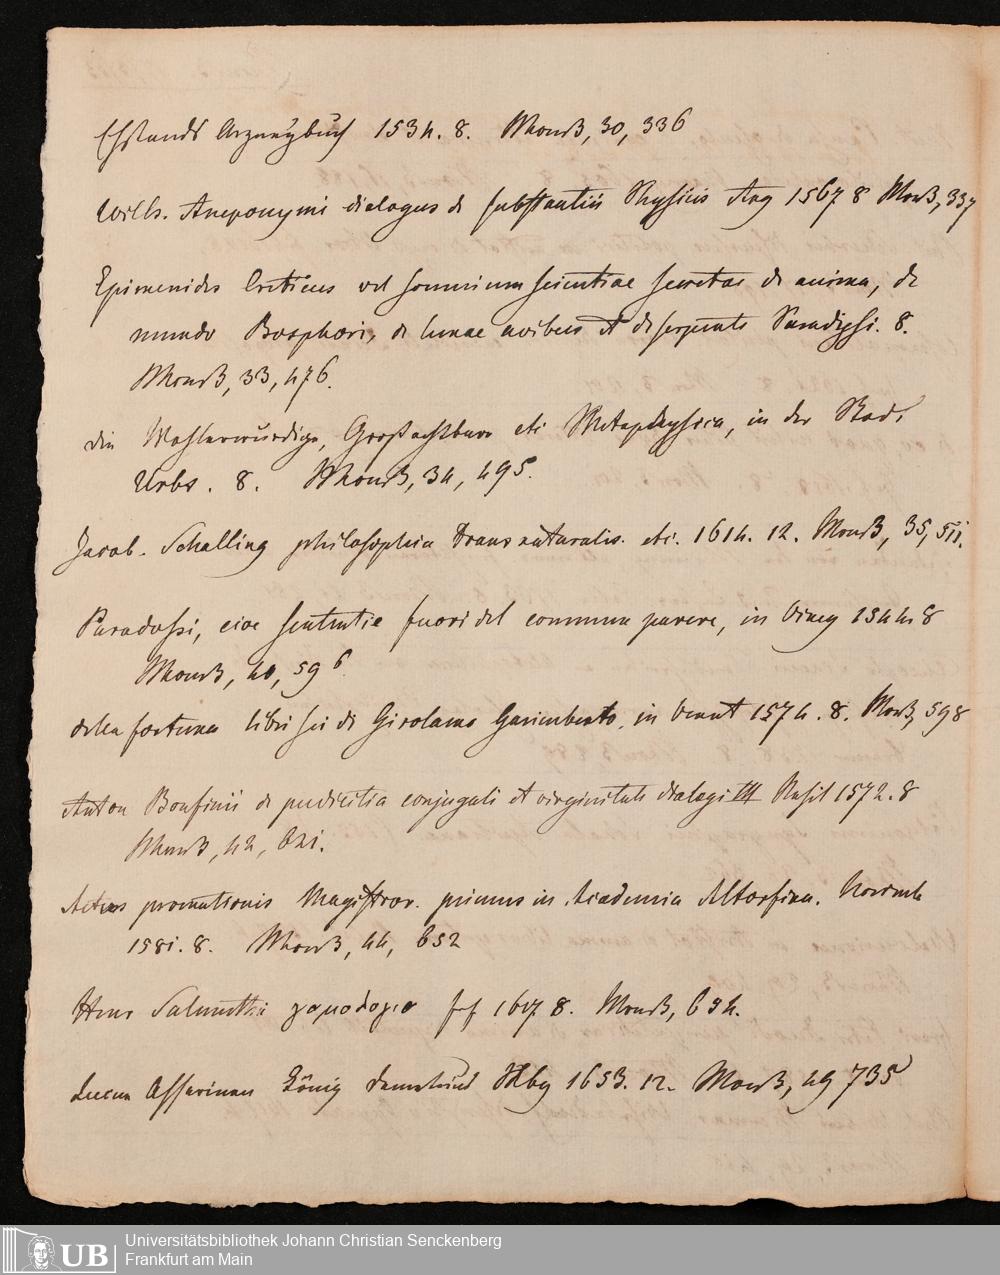 Ehstands Arzneybuch 1534. 8. Monß, 30, 336
Wilh. Aneponymi dialogus de substantiis Physicis Arg 1567 8 Monß, 337
Epimenides Creticus vel somnium scientiae secretae de anima, de
mundo Bosphori, de lunae avibus et de serpente 8.
Monß, 33, 476.
die Wohlerwürdige, Großachtbare etc Metaphysica, in der Stadt
Urbs. 8. Monß, 34, 495.
Jacob. Schalling philosophia transnaturalis. etc. 1614. 12. Monß, 35, 511.
Paradossi, cioe sententie fuori del commun parere, in Vineg 1544 8
Monß, 40, 596
della fortuna libri sei di Girolamo Garimberto, in Venet 1574. 8. Monß, 598
Anton Bonfinii de pudicitia conjugali et virginitate dialogi III Basil 1572. 8
Monß, 42, 621.
Actus promotionis Magistror. primus in Academia Altorfina. Novimb
1581. 8. Monß, 44, 652
Henr Salmuthi γαμολογια 1617 8. Monß, 654.
Lucae Assarinus König Demetrius Hbg 1653. 12. Monß, 49 735
Universitätsbibliothek Johann Christian Senckenberg
UB Frankfurt am Main